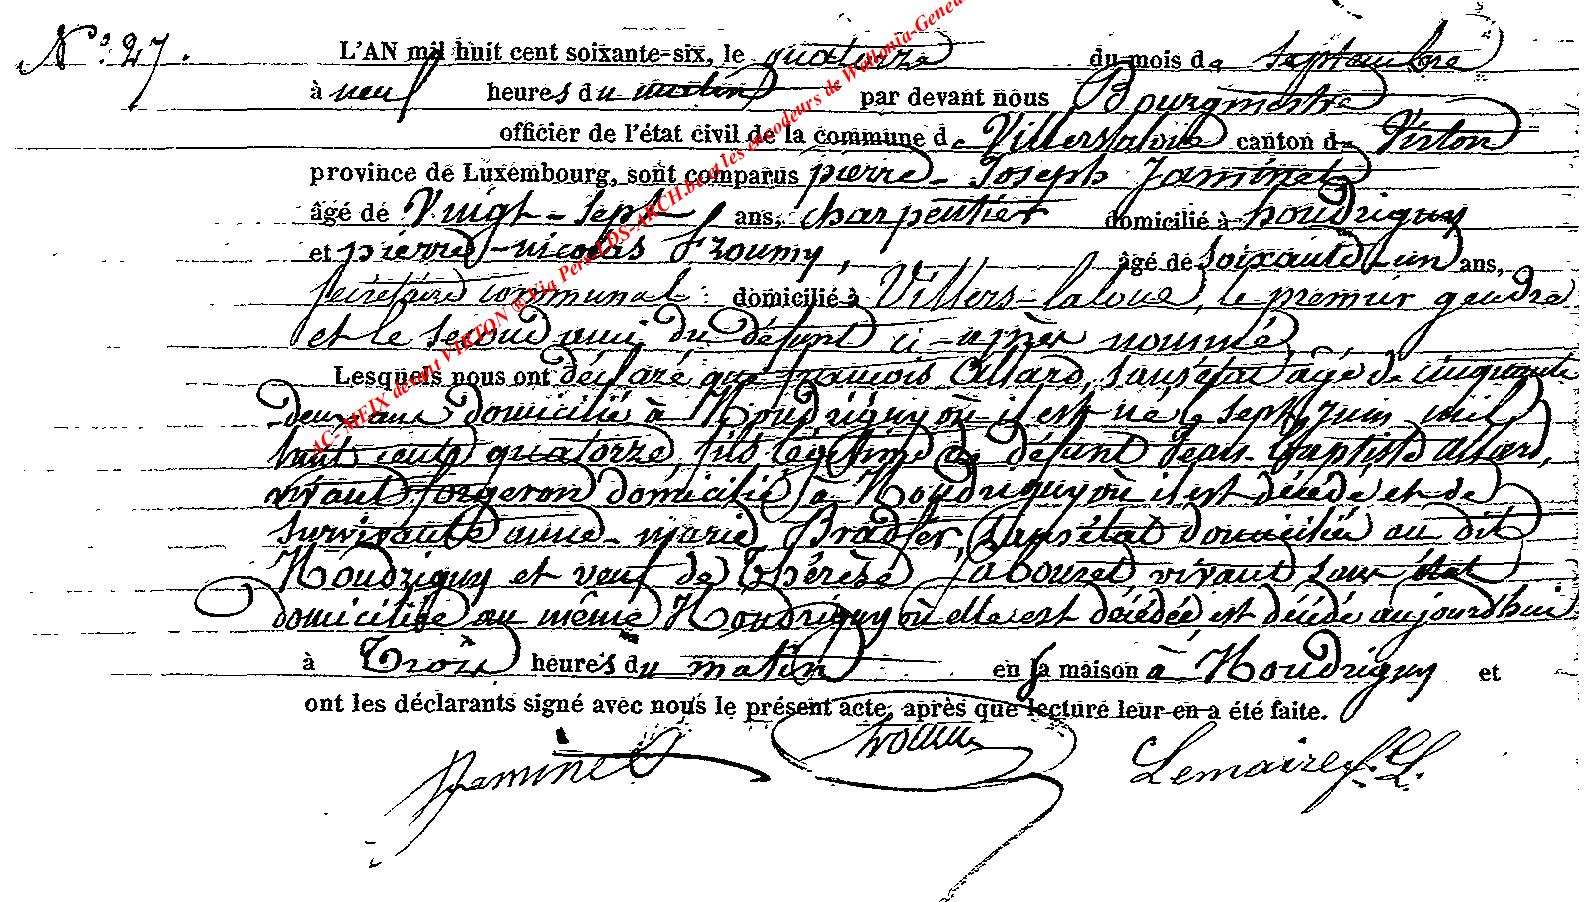 N° 27.
L'AN mil huit cent soixante-six, le quatorze du mois de septembre
à neuf heures du matin par devant nous Bourgmestre
officier de l'état civil de la commune de Villerslaloue canton de Virton
province de Luxembourg, sont comparus pierre-Joseph Jaminet
âgé de Vingt-sept ans, charpentier domicilié à houdrigny
et pierre-nicolas froumy, âgé de soixante-un ans,
secrétaire communal domicilié à Villers-laloue, le premier gendre
et le second ami du défunt ci-après nommé,
Lesquels nous ont déclaré que françois allard, sans état âgé de cinquante
deux ans domicilié à Houdrigny où il est né le sept juin mil
huit cent quatorze, fils légitime de défunt Jean-baptiste allard,
vivant forgeron domicilié à Houdrigny où il est décédé et de
survivante anne-marie Bradfer, sans état domiciliée au dit
Houdrigny et veuf de Thérèse Jabouret vivant sans état
domiciliée au même Houdrigny où elle est décédée est décédé aujourdhui
à Trois heures du matin en sa maison à Houdrigny et
ont les déclarants signé avec nous le présent acte, après que lecture leur en a été faite.
Jaminet froumy Lemaire f. L.
AC-MEIX devant VIRTON @ Via Pero LDS-ARCH.be et les encodeurs de Wallonia-Geneal